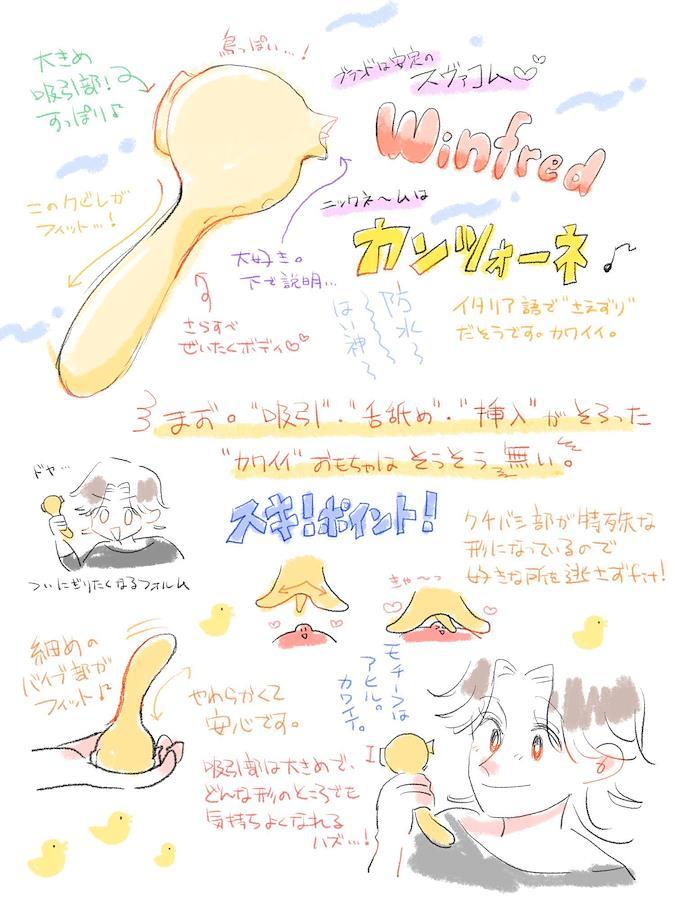 大きめ
吸引部!
すっぽり♪
鳥っぽい…!
ブランドは安定の
スヴァコム♡♡
Winfred
このクビレが
フィット…!
ニックネ〜ムは
カンツォーネ♪
大好き。
下で説明…
さらすべ
ぜいたくボディ♡♡
防水〜
はい神〜
イタリア語で"さえずり"
だそうです。カワイイ。
まお。"吸引"・"舌舐め"・"挿入"がそろった
"カワイイ"おもちゃはそうそう無い。
ドヤ…
ついにぎりたくなるフォルム
スキ!ポイント!
クチバシ部が特殊な
形になっているので
好きな所を逃さずfit!
きゃ〜っ
細めの
バイブ部が
フィット♪
やわらかくて
安心です。
モチーフは
アヒル。
カワイイ。
吸引部は大きめで、
どんな形のところでも
気持ちよくなれる
ハズ…!